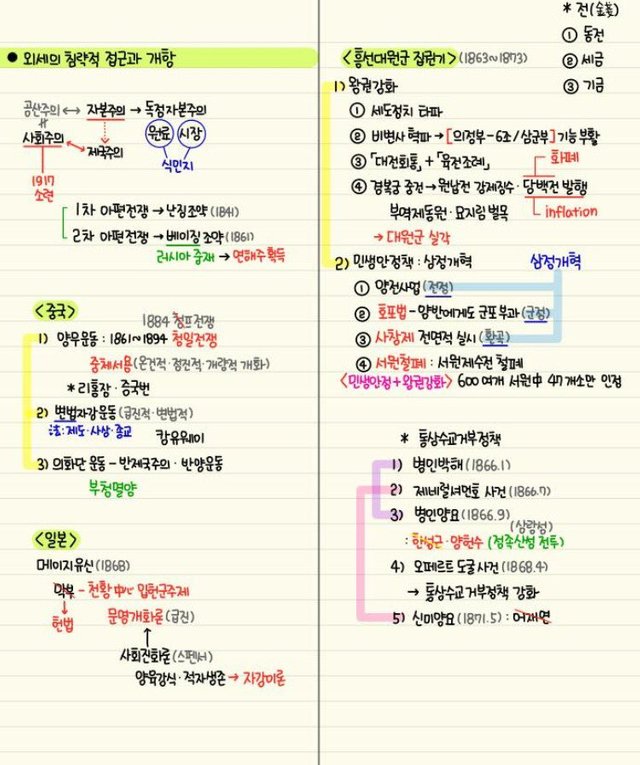 ● 외세의 침략적 접근과 개항
공산주의 ↔ 자본주의 → 독점자본주의
사회주의 ↔ 제국주의
원료 시장
식민지
1917
소련
1차 아편전쟁 → 난징조약 (1841)
2차 아편전쟁 → 베이징조약 (1861)
러시아 중재 → 연해주 획득
<중국>
1884 청프전쟁
1) 양무운동 : 1861~1894 청일전쟁
중체서용 (온건적·점진적·개량적 개화)
* 리홍장·증국번
2) 변법자강운동 (급진적·변법적)
法:제도·사상·종교
캉유웨이
3) 의화단 운동 - 반제국주의·반양운동
부청멸양
<일본>
메이지유신 (1868)
막부 - 천황 中心 입헌군주제
헌법
문명개화론 (급진)
사회진화론 (스펜서)
양육강식·적자생존 → 자강미론
* 전(金笺)
① 동전
② 세금
③ 기금
<흥선대원군 집권기> (1863~1873)
1) 왕권강화
① 세도정치 타파
② 비변사 혁파 → [의정부-6조/삼군부] 기능 부활
③ 「대전회통」+「육전조례」
화폐
④ 경복궁 중건 → 원납전 강제징수·당백전 발행
부역제동원·묘지림 벌목
inflation
→ 대원군 실각
2) 민생안정책 : 삼정개혁
삼정개혁
① 양전사업 (전정)
② 호포법 - 양반에게도 군포 부과 (군정)
③ 사창제 전면적 실시 (환곡)
④ 서원철폐 : 서원제수전 철폐
<민생안정+왕권강화> 600여개 서원中 47개소만 인정
* 통상수교거부정책
1) 병인박해 (1866.1)
2) 제너럴셔먼호 사건 (1866.7)
3) 병인양요 (1866.9)
(삼랑성)
: 한성근·양헌수 (정족산성 전투)
4) 오페르트 도굴 사건 (1868.4)
→ 통상수교 거부정책 강화
5) 신미양요 (1871.5) : 어재연